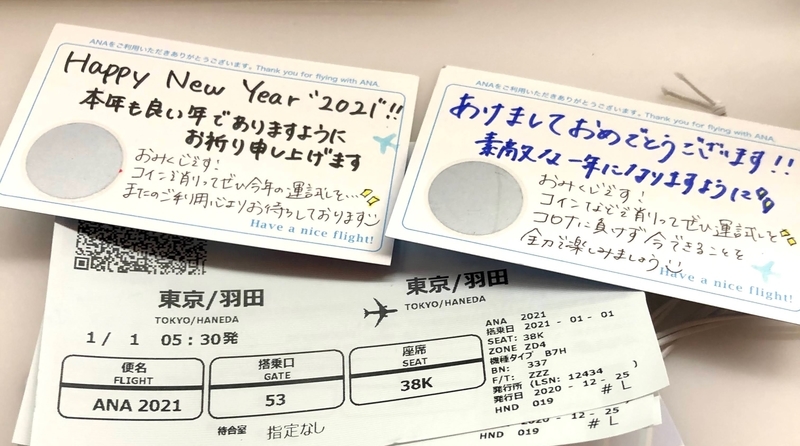 ANAをご利用いただきありがとうございます。Thank you for flying with ANA.
Happy New Year "2021"!!
本年も良い年でありますように
お祈り申し上げます
おみくじです!
コインで削ってぜひ今年の運試しを…
またのご利用心よりお待ちしております
Have a nice flight!
ANAをご利用いただきありがとうございます。Thank you for flying with ANA.
あけましておめでとうございます!!
素敵な一年になりますように
おみくじです!
コインなどで削ってぜひ運試しを
コロナに負けず今できることを
全力で楽しみましょう
Have a nice flight!
東京/羽田
TOKYO/HANEDA
東京/羽田
TOKYO/HANEDA
1/ 1 05:30発
便名
FLIGHT
ANA 2021
搭乗口
GATE
53
座席
SEAT
38K
待合室 指定なし
ANA 2021
搭乗日 2021-01-01
SEAT: 38K
ZONE ZD4
機種タイプ B7H
BN: 337
F/T: ZZZ
発行所 (LSN: 12434
発行日 2020-12-25
HND 019 #L
-12-25
HND 019 #L